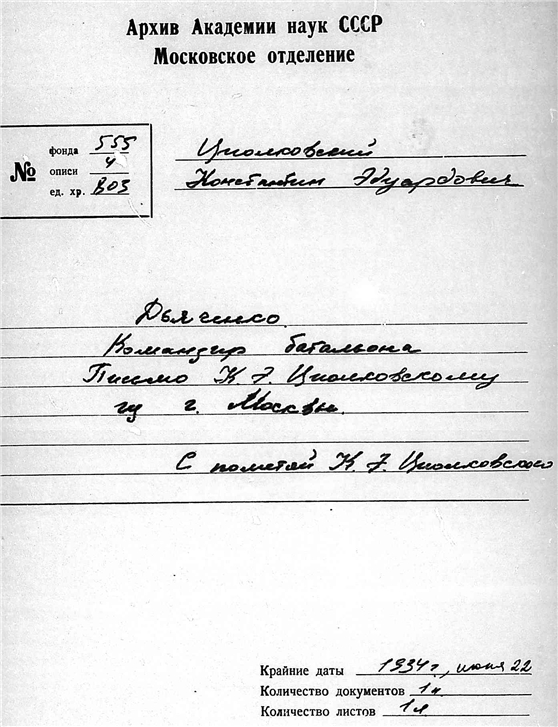 Архив Академии наук СССР
Московское отделение
№
фонда 555
описи 4
ед. хр. 203
Циолковский
Константин Эдуардович
Дьяченко
Командир батальона
Письмо К. Э. Циолковскому
из г. Москвы.
С пометой К. Э. Циолковского
Крайние даты 1934 г., июня 22
Количество документов 1
Количество листов 1 л